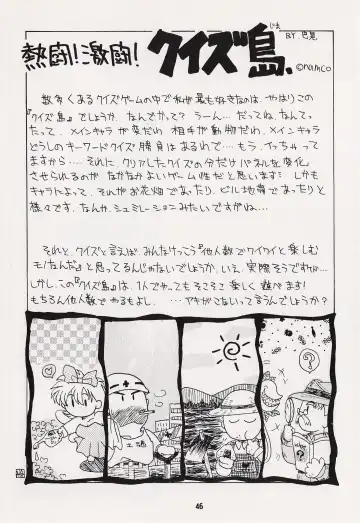 熱闘!激闘!クイズ島 BY.巴晃
©namco
数多くあるクイズゲームの中で私が最も好きなのは、やはりこの
『クイズ島』でしょうか。なんでかって?うーん…だってね、なんてっ
たって、メインキャラが楽だわ 相手が動物だわ、メインキャラ
どうしのキーワードクイズ勝負はあるわで…もう、イッちゃってま
ますから……それに、クリアしたクイズの分だけパネルを変化
させられるのが なかなかよいゲーム性だと思います。しかも
キャラによって、それがお花畑であったり、ビル地帯であったりと
様々です。なんか、シュミレーションみたいですがね…
それと、クイズと言えば、みんなけっこう『他人数でワイワイと楽しむ
モノなんだ』と思ってるんじゃないでしょうか。いえ、実際そうですが…
しかし、この『クイズ島』は、1人でやってもそこそこ楽しく遊べます!
もちろん他人数でやるもよし、…アキがこないって言うんでしょうか?
土地
?
46